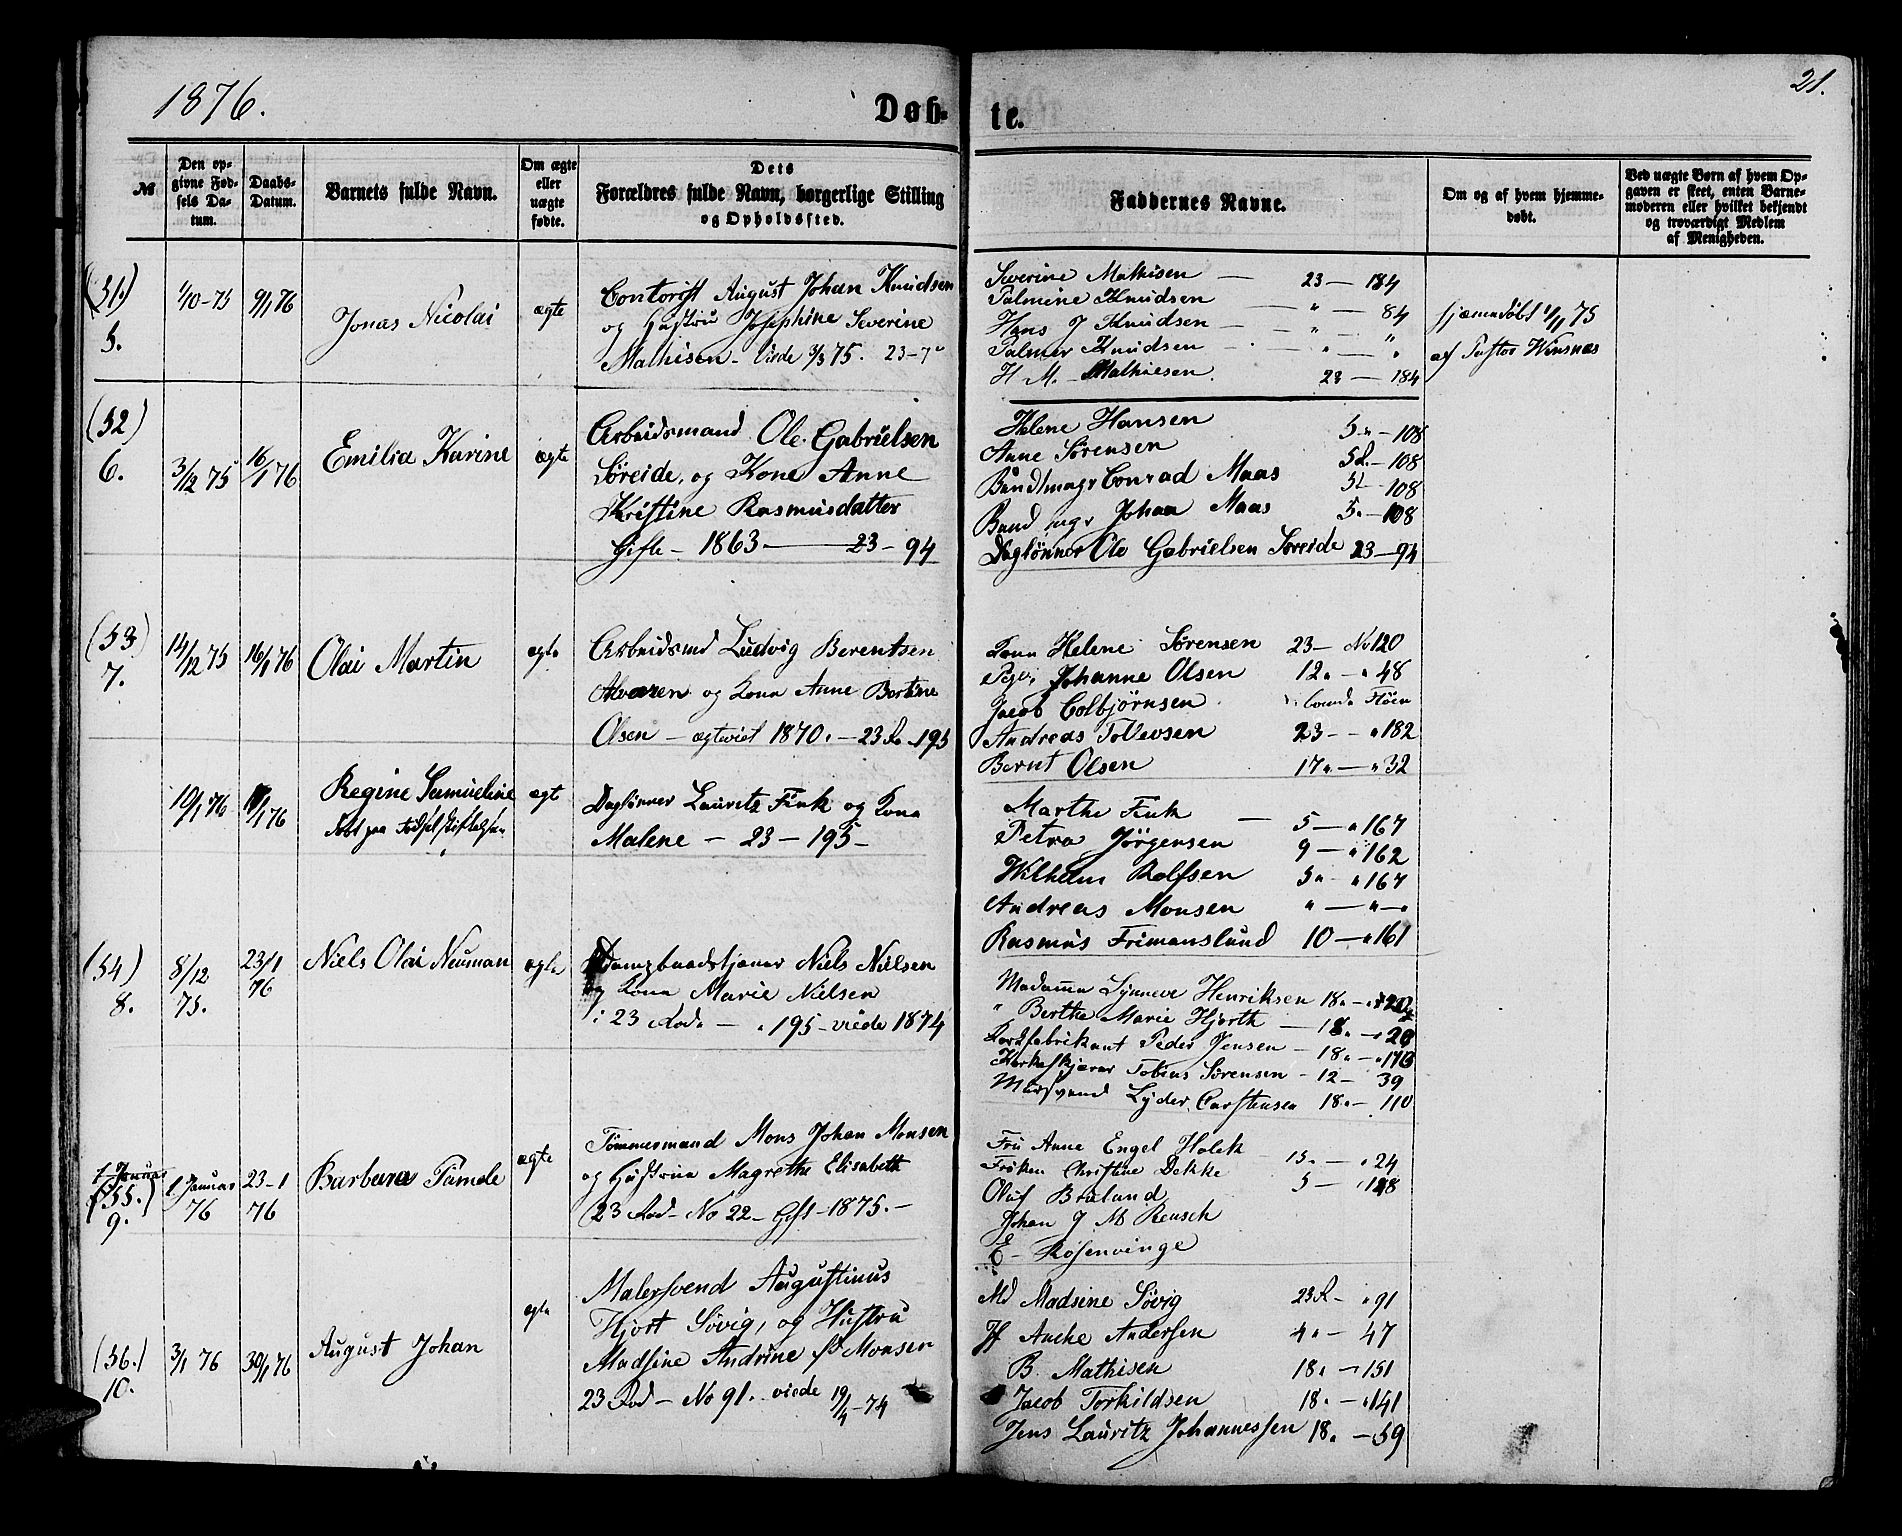 1876.
Døb-
te.
21.
№
Den op-
givne Fød-
sels Da-
tum.
Daabs-
Datum.
Barnets fulde Navn.
Om ægte
eller
uægte
fødte.
Dets
Forældres fulde Navn, borgerlige Stilling
og Opholdssted.
Faddernes Navne.
Om og af hvem hjemme-
døbt.
Ved uægte Børn af hvem Op-
gaven er skeet, enten Barne-
moderen eller hvilket bekjendt
og troværdigt Medlem
af Menigheden.
(51.)
5.
1/10-75
9/1 76
Jonas Nicolai
ægte
Contorist August Johan Knudsen
og Hustru Josephine Severine
Mathisen - viede 3/3 75. 23-7
Severine Mathisen — 23 — 184
Palmine Knudsen — " — 84
Hans J Knudsen — " — "
Palmer Knudsen — " — "
H M. Mathiesen. 23 — 184
hjemmedøbt 11/11 75
af Pastor Winsnæs
(52)
6.
3/12 75
16/1 76
Emilia Karine
ægte
Arbeidsmand Ole Gabrielsen
Søreide, og Kone Anne
Kristine Rasmusdatter
Gifte - 1863 — 23 - 94
Helene Hansen 5 - 108
Anne Sørensen 5 R. - 108
Bundtmagr Conrad Maas 5 - 108
Bund mgr Johan Maas 5. - 108
Daglønner Ole Gabrielsen Søreide 23 — 94
(53)
7.
14/12 75
16/1 76
Olai Martin
ægte
Arbeidsmd Ludvig Berentsen
Alvaren og Kona Anne Bertine
Olsen - egteviet 1870. - 23 R - 195
Kona Helene Sørensen 23 - No 120
Pige, Johanne Olsen 12. - " 48
Jacob Colbjørnsen
Andreas Tollevsen 23 - - " 182
Bernt Olsen 17. - " 32
10/1 76
1/1 76
Regine Samueline
født paa Fødselsstiftelsen
ægt
Daglønner Lauritz Fink og Kona
Malene - 23 - 195 -
Marthe Fink — 5 — " 167
Petra Jörgensen 9 — " 162
Wilhelm Rolfsen 5 " " 167
Andreas Monsen " — " — "
Rasmus Frimanslund 10 — " 161
(54)
8.
8/12
75.
23/1
76
Niels Olai Neuman
ægte
Dampbaadstjener Niels Nielsen
og Kona Marie Nielsen
i 23 Rode — " 195 - viede 1874
Madamme Synneve Henriksen 18.
" Berthe Marie Hjorth — 18. - " 28
Kordfabrikant Peder Jensen - 18. - "
Tobias Sørensen - 12 - 39
Lyder Carstensen 18. - 110
1 Januar
(55.)
9.
1 Januar
76
23-1
76
Barbara Tümde
ægte
Tömmermand Mons Johan Monsen
og Hustrue Magrethe Elisabeth
23 Rod - No 22 - Gift - 1875. -
Fru Anne Engel Holck - 15. - " 24
Frøken Christine Dekke 5 -
Oluf Bruland
Johan J M Reusch
E - Rosenvinge
(56.)
10.
3/1 76
30/1 76
August Johan
egte
Malersvend Augustinus
Hjort Søvig, og Hustru
Madsine Andrine f. Monsen
23 Rod - No 91. viede 19/4 - 74
Md Madsine Søvig 23 R - " 91
Jf Anche Andersen 4. - 47
B. Mathisen 18. - 151
Jacob Torkildsen 18. - " 141
Jens Lauritz Johannessen 18. - 59